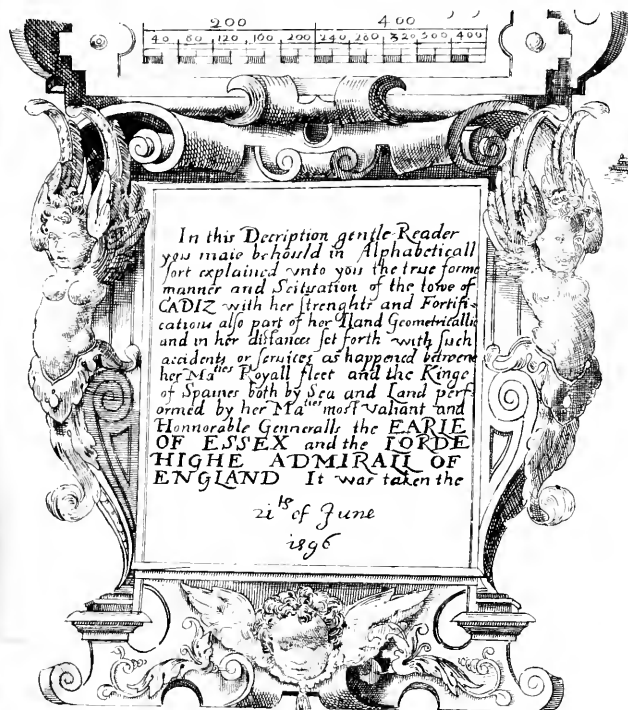 200 400
40 80 120 160 200 240 280 320 360 400
In this Decription gentle Reader
you maie behould in Alphabeticall
sort explained vnto you the true forme
manner and Scituation of the towe of
CADIZ with her strenghts and Fortifi-
cations also part of her Iland Geometricallie
and in her distances set forth with such
accidents or services as happened betweene
her Maties Royall fleet and the Kinge
of Spaines both by Sea and Land perf
ormed by her Maties most valiant and
Honnorable Genneralls the EARLE
OF ESSEX and the LORDE
HIGHE ADMIRALL OF
ENGLAND It was taken the
21th of June
1596